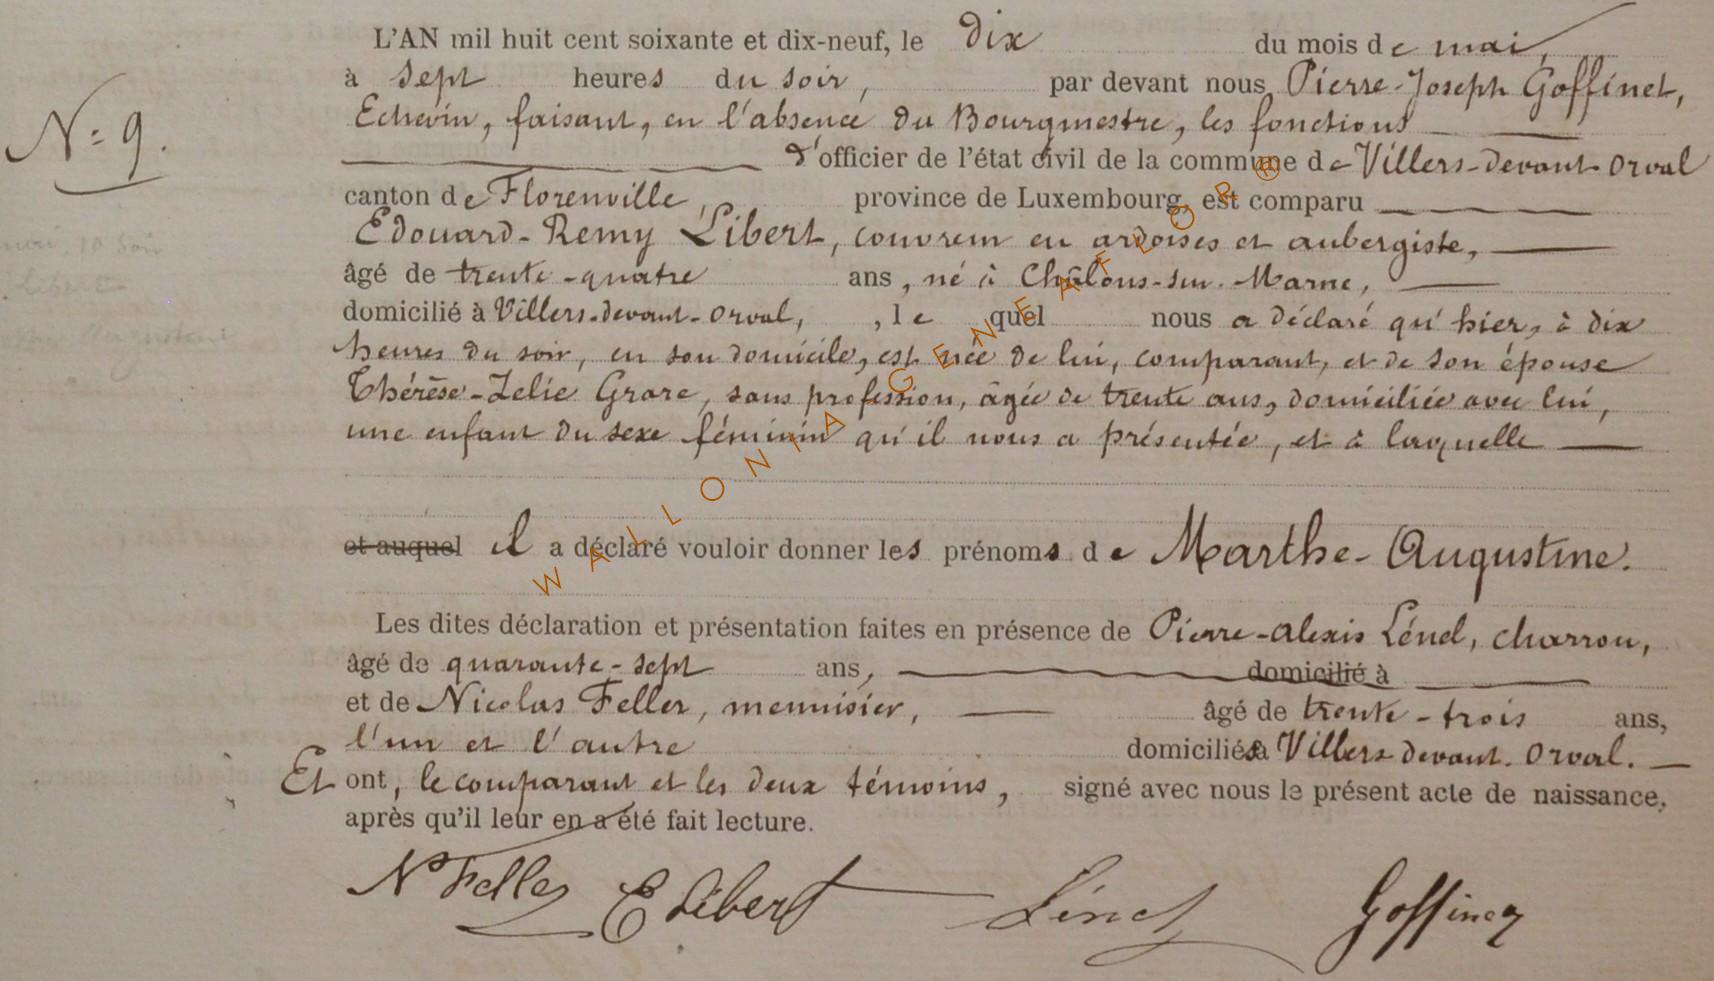 L'AN mil huit cent soixante et dix-neuf, le dix du mois de mai,
à sept heures du soir, par devant nous Pierre-Joseph Goffinet,
N: 9.
Echevin, faisant, en l'absence du Bourgmestre, les fonctions
d'officier de l'état civil de la commune de Villers-devant-Orval
canton de Florenville, province de Luxembourg, est comparu
Edouard-Remy Libert, couvreur en ardoises et aubergiste,
âgé de trente-quatre ans, né à Châlons-sur-Marne,
domicilié à Villers-devant-Orval, , le quel nous a déclaré qu'hier, à dix
heures du soir, en son domicile, est née de lui, comparant, et de son épouse
Thérèse-Zelie Grare, sans profession, âgée de trente ans, domiciliée avec lui,
une enfant du sexe féminin qu'il nous a présentée, et à laquelle
et auquel il a déclaré vouloir donner les prénoms de Marthe-Augustine.
Les dites déclaration et présentation faites en présence de Pierre-Alexis Lénel, charron,
âgé de quarante-sept ans, domicilié à
et de Nicolas Feller, menuisier, âgé de trente-trois ans,
l'un et l'autre domiciliés à Villers devant Orval.
Et ont, le comparant et les deux témoins, signé avec nous le présent acte de naissance,
après qu'il leur en a été fait lecture.
N Feller E Libert Lénel Goffinet
WALLONIA - GENEAFLOR ®